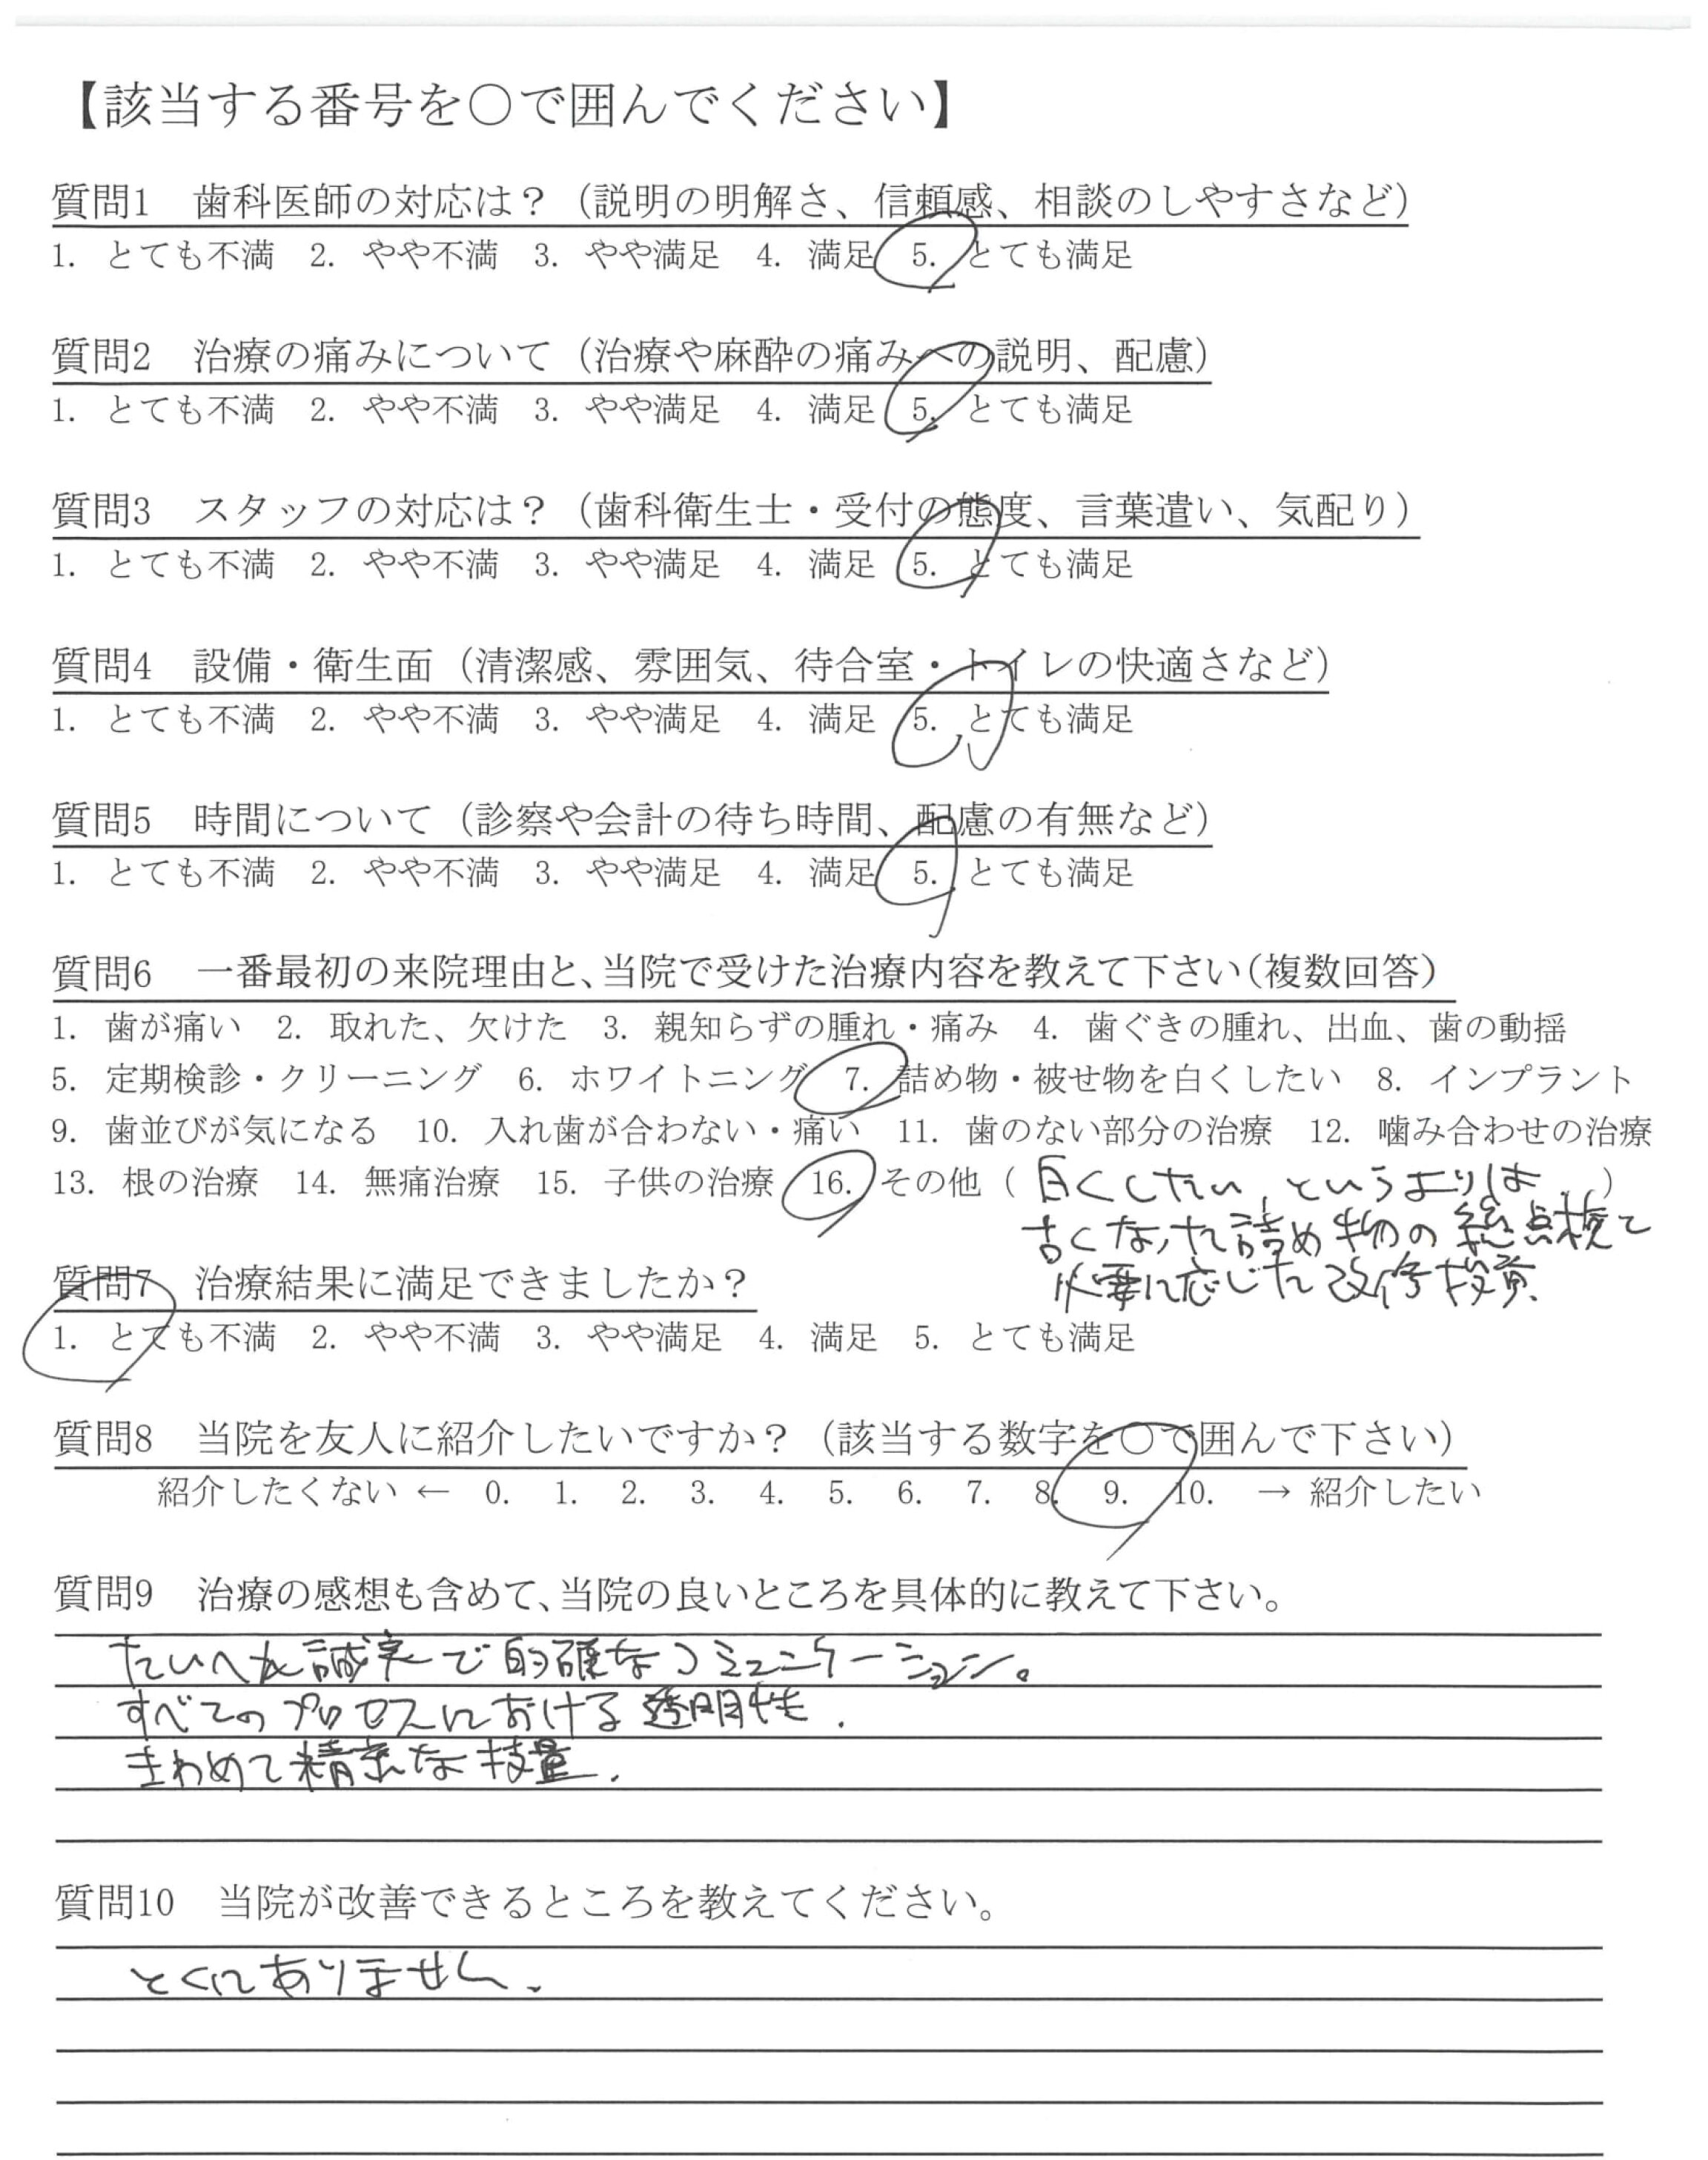 【該当する番号を○で囲んでください】
質問1　歯科医師の対応は？（説明の明解さ、信頼感、相談のしやすさなど）
1. とても不満　2. やや不満　3. やや満足　4. 満足　5. とても満足
質問2　治療の痛みについて（治療や麻酔の痛みへの説明、配慮）
1. とても不満　2. やや不満　3. やや満足　4. 満足　5. とても満足
質問3　スタッフの対応は？（歯科衛生士・受付の態度、言葉遣い、気配り）
1. とても不満　2. やや不満　3. やや満足　4. 満足　5. とても満足
質問4　設備・衛生面（清潔感、雰囲気、待合室・トイレの快適さなど）
1. とても不満　2. やや不満　3. やや満足　4. 満足　5. とても満足
質問5　時間について（診察や会計の待ち時間、配慮の有無など）
1. とても不満　2. やや不満　3. やや満足　4. 満足　5. とても満足
質問6　一番最初の来院理由と、当院で受けた治療内容を教えて下さい（複数回答）
1. 歯が痛い　2. 取れた、欠けた　3. 親知らずの腫れ・痛み　4. 歯ぐきの腫れ、出血、歯の動揺
5. 定期検診・クリーニング　6. ホワイトニング　7. 詰め物・被せ物を白くしたい　8. インプラント
9. 歯並びが気になる　10. 入れ歯が合わない・痛い　11. 歯のない部分の治療　12. 噛み合わせの治療
13. 根の治療　14. 無痛治療　15. 子供の治療　16. その他（白くしたい、というよりは）
古くなった詰め物の総点検と
必要に応じた改修投資.
質問7　治療結果に満足できましたか？
1. とても不満　2. やや不満　3. やや満足　4. 満足　5. とても満足
質問8　当院を友人に紹介したいですか？（該当する数字を○で囲んで下さい）
紹介したくない ← 0.　1.　2.　3.　4.　5.　6.　7.　8.　9.　10.　→ 紹介したい
質問9　治療の感想も含めて、当院の良いところを具体的に教えて下さい。
たいへん誠実で的確なコミュニケーション。
すべてのプロセスにおける透明性.
きわめて精密な技量.
質問10　当院が改善できるところを教えてください。
とくにありません.